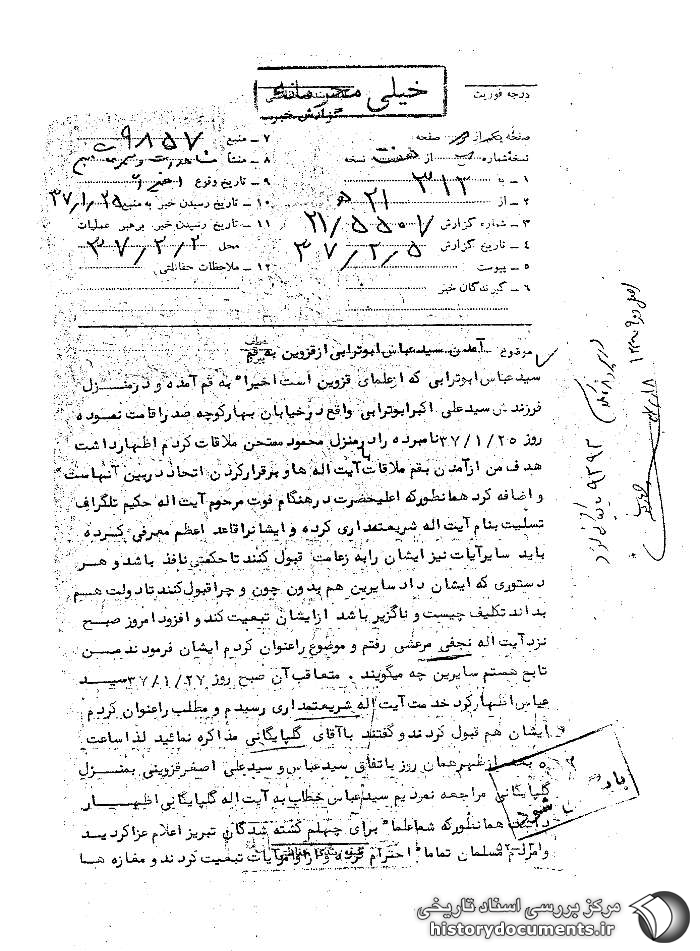 خیلی محرمانه
گزارش خبر
درجه فوریت
صفحه یکم از صفحه
نسخه شماره از هفت نسخه
۱ – به ۳۱۲
۲ – از ۲۱ ه
۳ – شماره گزارش ۲۱/۵۵۰۷
۴ – تاریخ گزارش ۳۷/۲/۵
۵ – پیوست
۶ – گیرندگان خبر
۷ – منبع ۹۸۵۷
۸ – منشأ
۹ – تاریخ وقوع اخیراً
۱۰ – تاریخ رسیدن خبر به منبع ۳۷/۱/۲۵
۱۱ – تاریخ رسیدن خبر برهبر عملیات
محل ۳۷/۲/۲
۱۲ – ملاحظات حفاظتی
موضوع آمدن سیدعباس ابوترابی از قزوین به قم
سیدعباس ابوترابی که ازعلمای قزوین است اخیرا" به قم آمده و درمنزل
فرزندش سیدعلی اکبرابوترابی واقع درخیابان بهارکوچه صدراقامت نموده
روز ۳۷/۱/۲۵ نامبرده رادرمنزل محمود ممتحن ملاقات کردم اظهارداشت
هدف من ازآمدن بقم ملاقات باآیت اله ها و برقرارکردن اتحاد دربین آنهاست
و اضافه کرد همانطورکه اعلیحضرت درهنگام فوت مرحوم آیت اله حکیم تلگراف
تسلیت بنام آیت اله شریعتمداری کرده و ایشانراقاعد اعظم معرفی کرده
باید سایرآیات نیز ایشان رابه زعامت قبول کنند تاحکمش نافذ باشد و هر
دستوری که ایشان داد سایرین هم بدون چون و چراقبول کنند تادولت هم
بداند تکلیف چیست و ناگزیر باشد ازایشان تبعیت کند و افزود امروز صبح
نزد آیت اله نجفی مرعشی رفتم و موضوع راعنوان کردم ایشان فرمودند من
تابع هستم سایرین چه میگویند . متعاقب آن صبح روز ۳۷/۱/۲۷ سید
عباس اظهارکرد خدمت آیت اله شریعتمداری رسیدم و مطلب راعنوان کردم
ایشان هم قبول کردند و گفتند باآقای گلپایگانی مذاکره نمائید لذا ساعت
۵ بعد ازظهرهمان روز باتفاق سیدعباس و سیدعلی اصغرقزوینی بمنزل
گلپایگانی مراجعه نمودیم سیدعباس خطاب به آیت اله گلپایگانی اظهار
داشت همانطورکه شماعلما" برای چهلم کشته شدگان تبریز اعلام عزاکردید
و مردم مسلمان تماما" احترام کرده و ازاوامر آیات تبعیت کردند و مغازه ها
باید
شود
مرکز بررسی اسناد تاریخی
historydocuments.ir